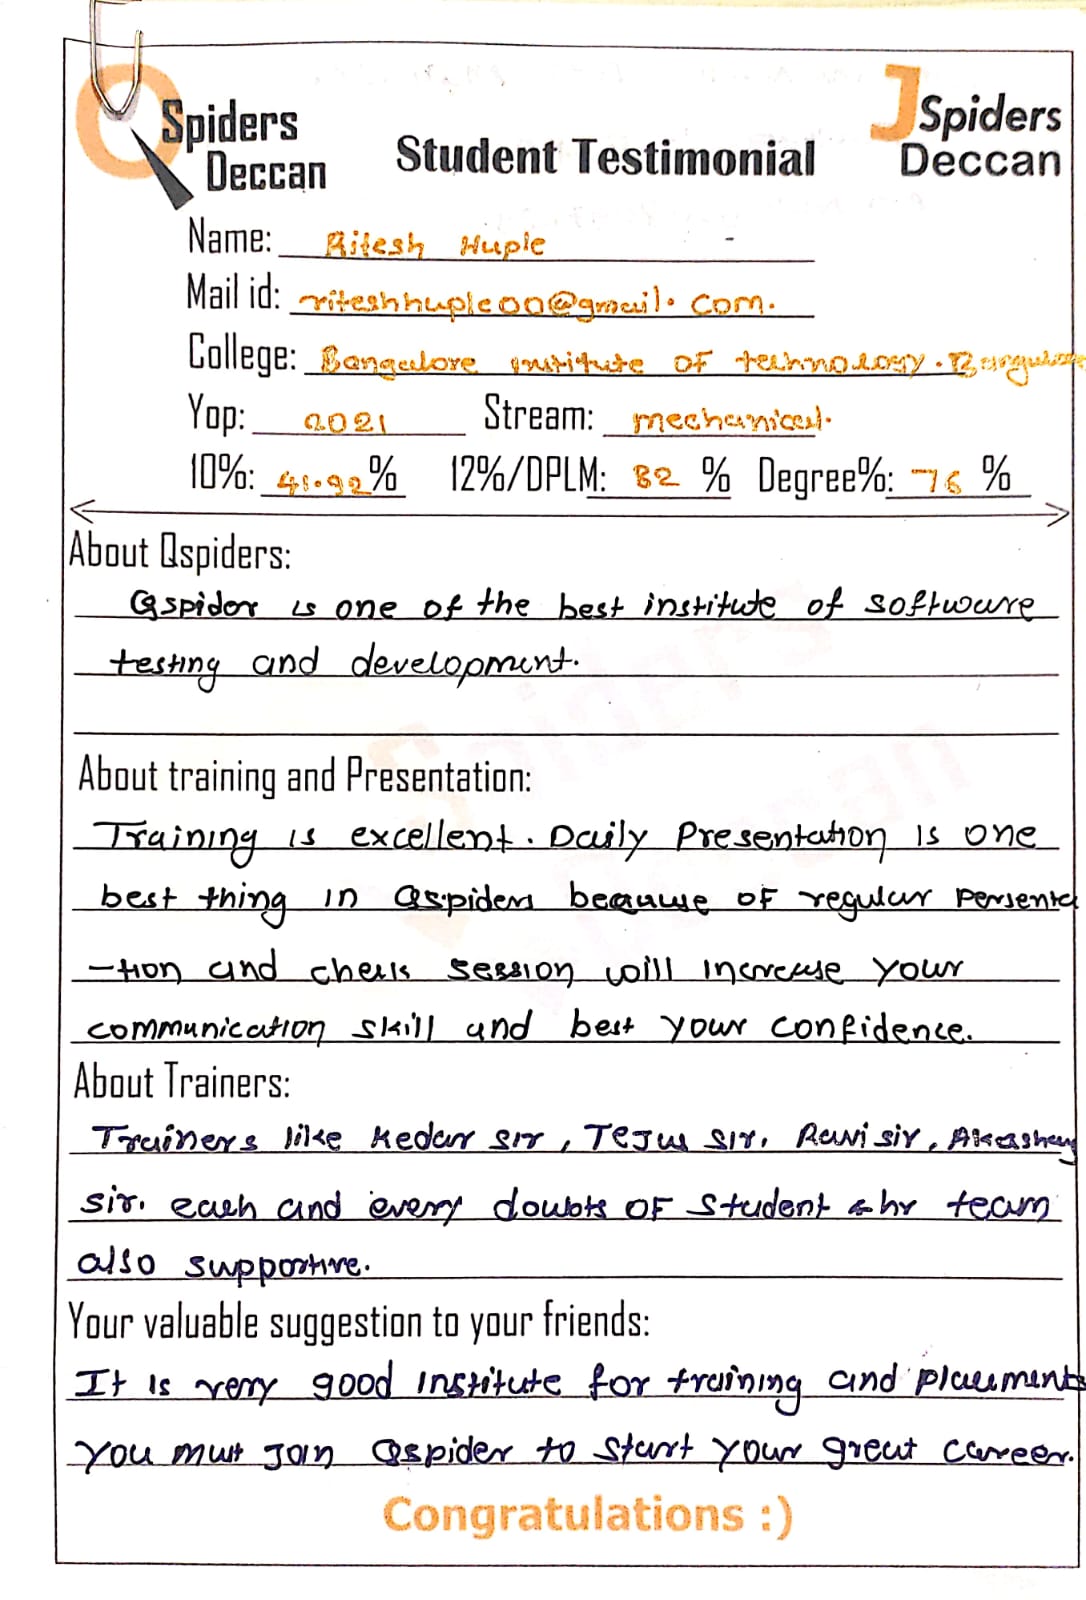 QSpiders Deccan
Student Testimonial
JSpiders Deccan
Name: Ritesh Huple
Mail id: riteshhuple00@gmail.com.
College: Bangalore institute of technology. Bangalore
Yop: 2021 Stream: mechanical.
10%: 41.92% 12%/DPLM: 82 % Degree%: 76 %
About Qspiders:
Qspider is one of the best institute of software
testing and development.
About training and Presentation:
Training is excellent. Daily Presentation is one
best thing in Qspiders because of regular Persenta
-tion and check session will increase your
communication skill and best your confidence.
About Trainers:
Trainers like Kedar sir, Tejus sir, Ravi sir,
sir. each and every doubts of student & hr team
also supportive.
Your valuable suggestion to your friends:
It is very good institute for training and placements
you must join Qspider to start your great career.
Congratulations :)